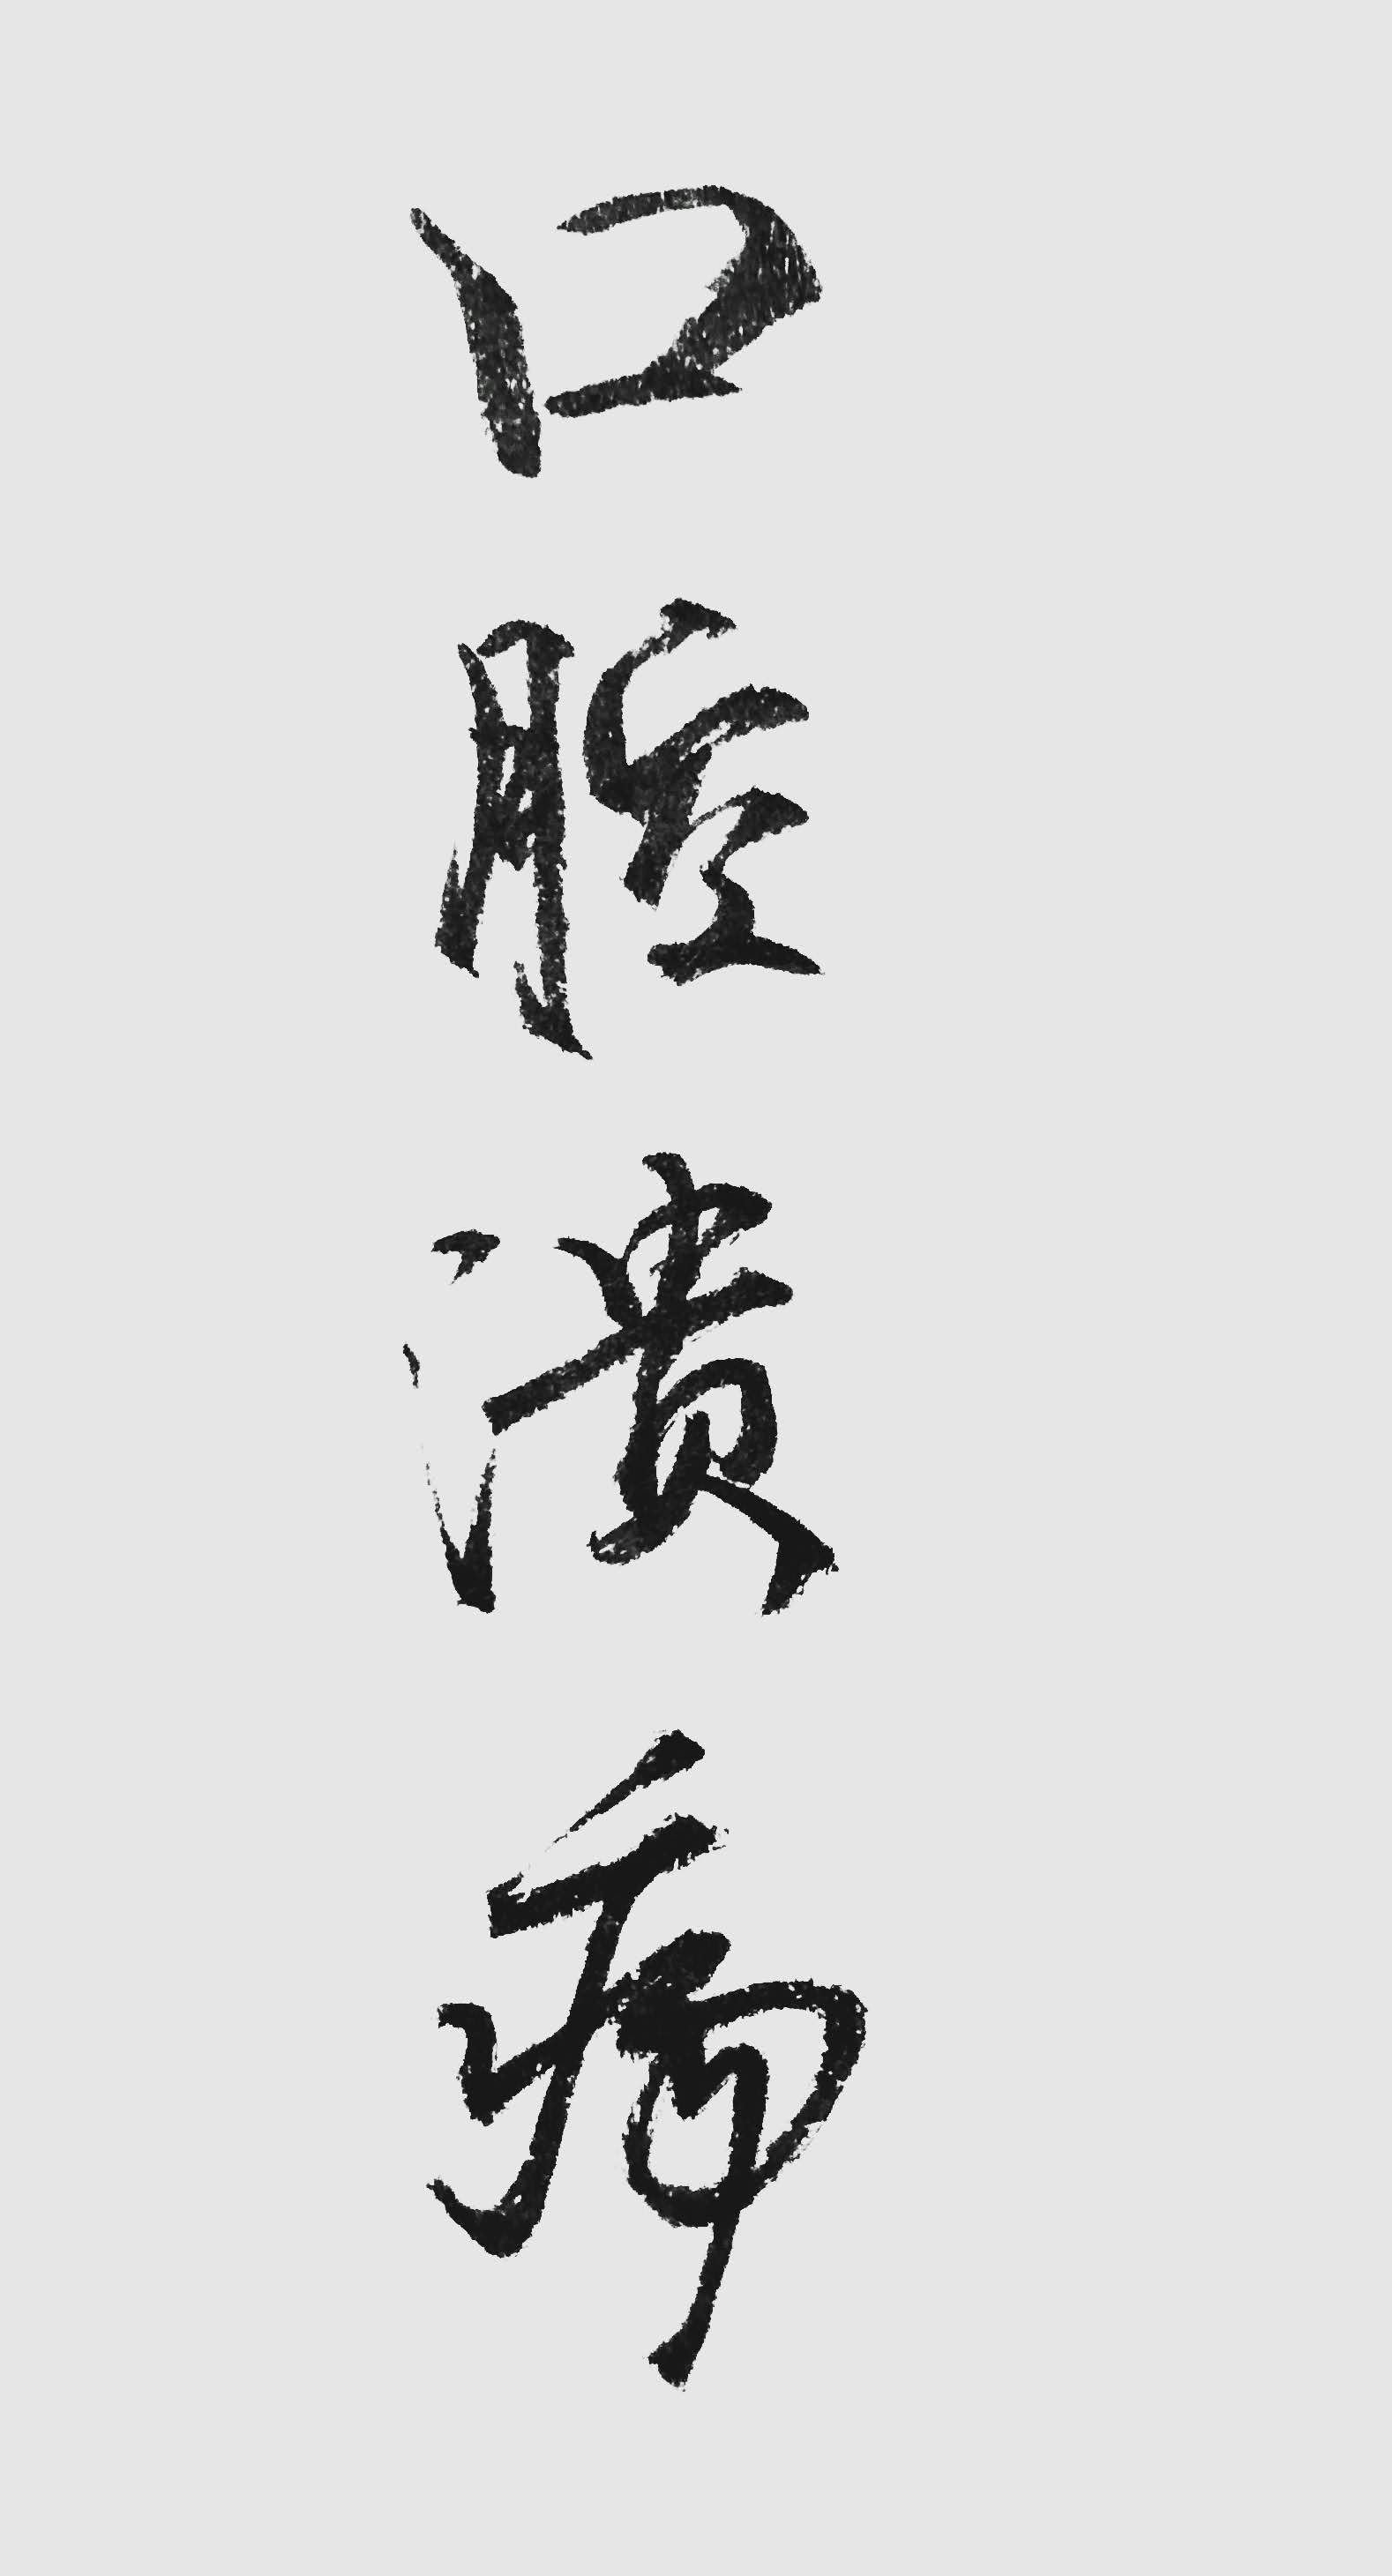 口腔溃疡